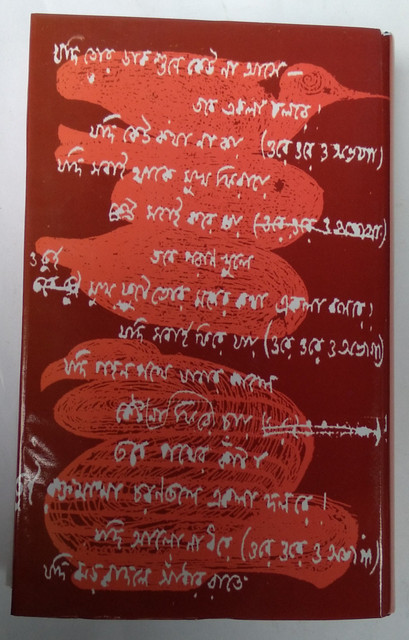 যদি তোর ডাক শুনে কেউ না আসে —
তবে একলা চলরে।
যদি কেউ কথা না কয় (ওরে ওরে ও অভাগা)
যদি সবাই থাকে মুখ ফিরায়ে
সবাই করে ভয় (ওরে ওরে ও অভাগা)
তবে পরাণ খুলে
ও তুই
মুখ ফুটে তোর মনের কথা একলা বলরে।
যদি সবাই ফিরে যায় (ওরে ওরে ও অভাগা)
যদি গহন পথে যাবার কালে
কেউ ফিরে চায়
তবে পথের কাঁটা
রক্তমাখা চরণতলে একলা দলরে।
যদি আলো না ধরে (ওরে ওরে ও অভাগা)
যদি ঝড় বাদলে আঁধার রাতে